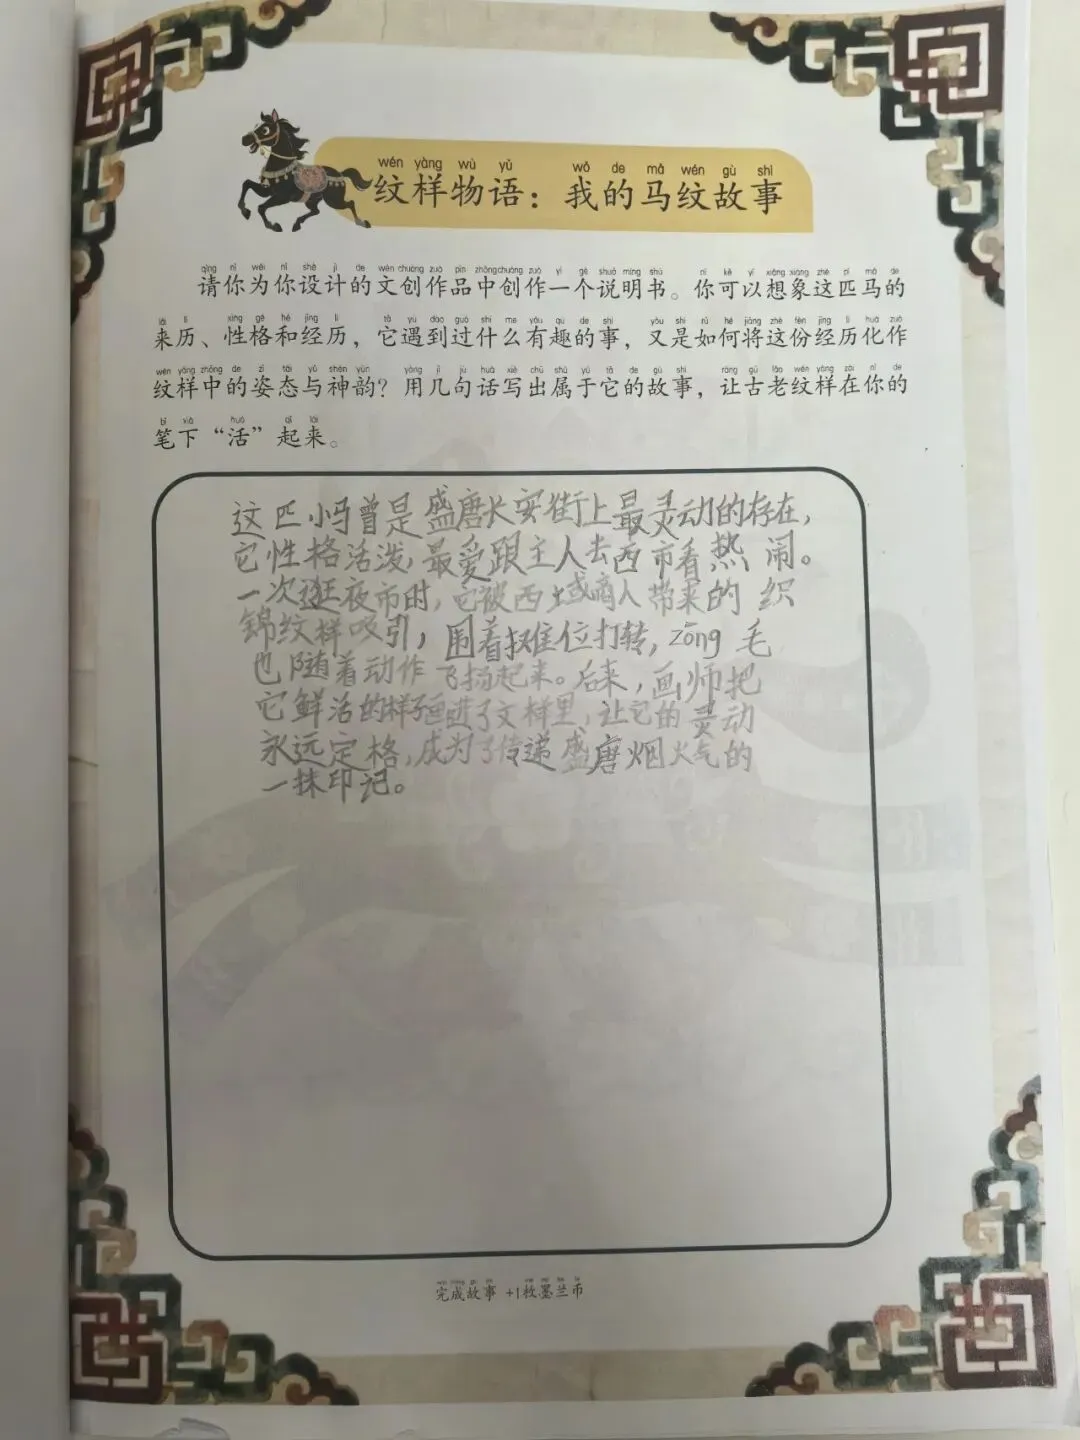 wén yàng wù yǔ wǒ de mǎ wén gù shì
纹样物语：我的马纹故事
qǐng nǐ wèi nǐ shè jì de wén chuàng zuò pǐn zhōng chuàng zuò yí gè shuō míng shū nǐ kě yǐ xiǎng xiàng zhè pǐ mǎ de
请你为你设计的文创作品中创作一个说明书。你可以想象这匹马的
lái lì xìng gé hé jīng lì tā yù dào guò shí me yǒu qù de shì yòu shì rú hé jiāng zhè fèn jīng lì huà zuò
来历、性格和经历，它遇到过什么有趣的事，又是如何将这份经历化作
wén yàng zhōng de zī tài yǔ shén yùn yòng jǐ jù huà xiě chū shǔ yú tā de gù shi ràng gǔ lǎo wén yàng zài nǐ de
纹样中的姿态与神韵？用几句话写出属于它的故事，让古老纹样在你的
bǐ xià huó qǐ lái
笔下“活”起来。
这匹小马曾是盛唐长安街上最灵动的存在，
它性格活泼，最爱跟主人去西市看热闹。
一次逛夜市时，它被西域商人带来的织
锦纹样吸引，围着摊位打转，zōng毛
也随着动作飞扬起来。后来，画师把
它鲜活的样子画进了文样里，让它的灵动
永远定格，成为了传递盛唐烟火气的
一抹印记。
完成故事 +1枚墨兰币